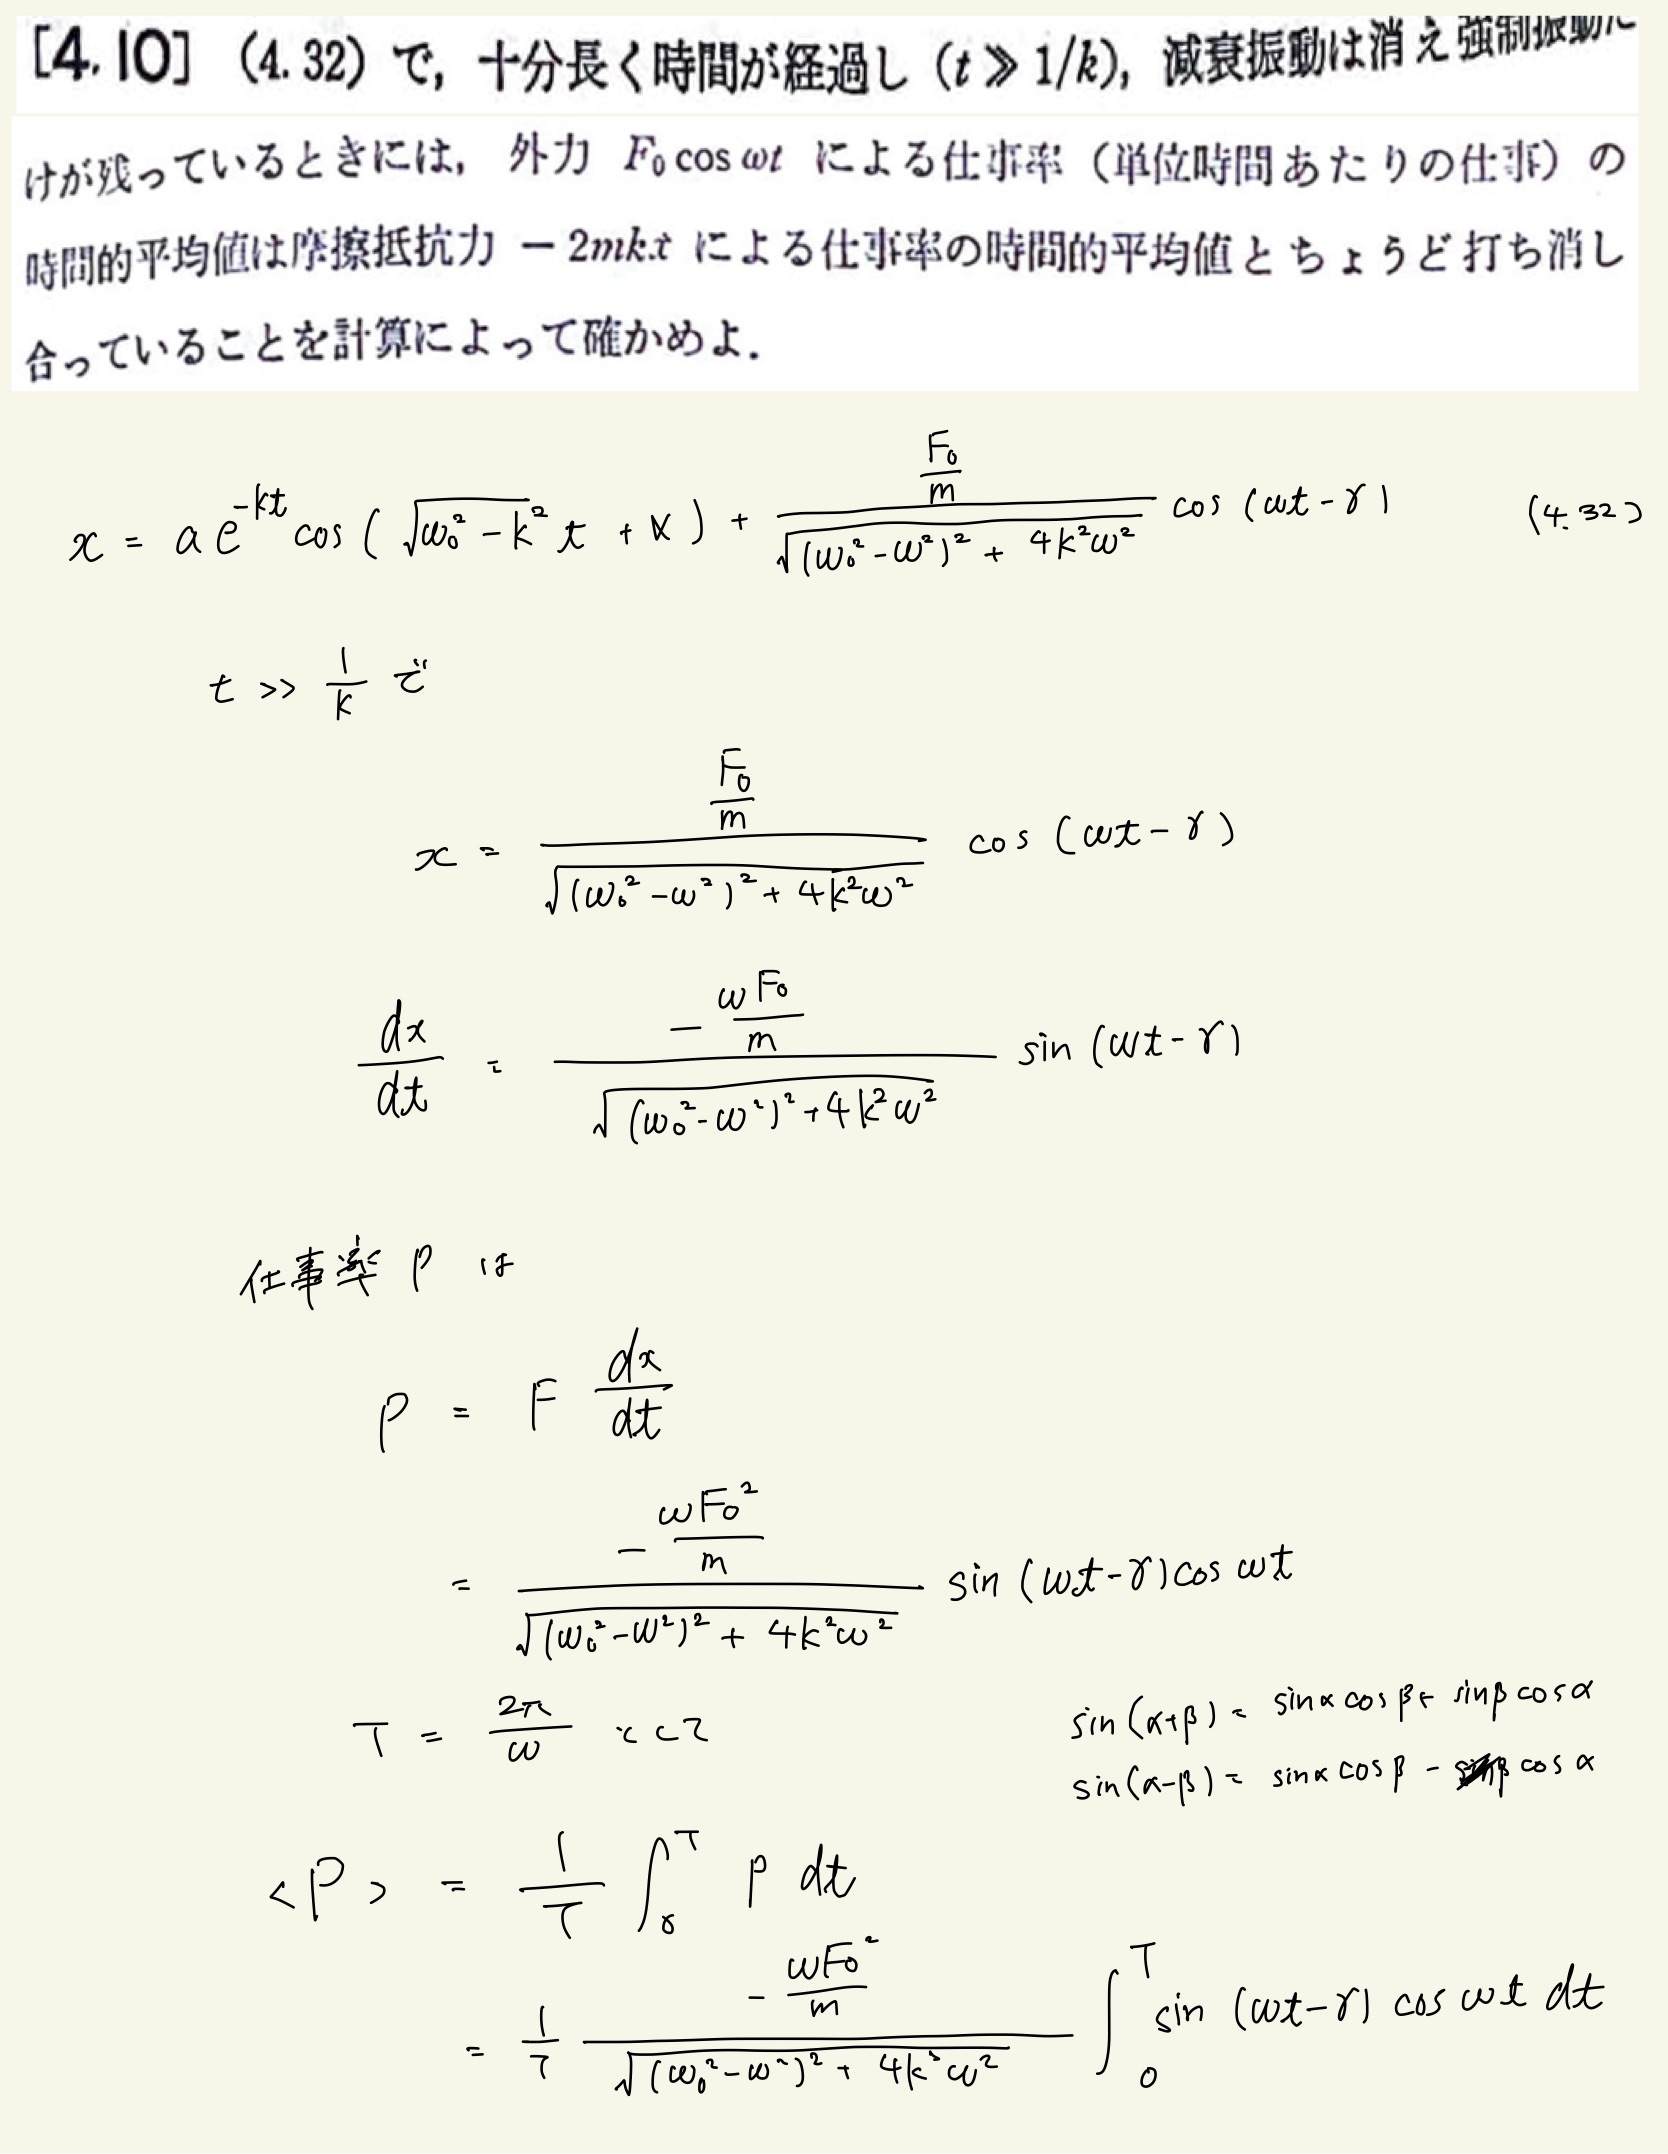 [4.10] (4.32) で, 十分長く時間が経過し (t ≫ 1/k), 減衰振動は消え強制振動だ
けが残っているときには, 外力 F₀ cos ωt による仕事率 (単位時間あたりの仕事) の
時間的平均値は摩擦抵抗力 −2mkẋ による仕事率の時間的平均値とちょうど打ち消し
合っていることを計算によって確かめよ.
x = a e^{-kt} cos ( √(ω₀² − k²) t + α ) + (F₀/m) / √((ω₀² − ω²)² + 4k²ω²) cos (ωt − γ) (4.32)
t >> 1/k で
x = (F₀/m) / √((ω₀² − ω²)² + 4k²ω²) cos (ωt − γ)
dx/dt = (− ωF₀/m) / √((ω₀² − ω²)² + 4k²ω²) sin (ωt − γ)
仕事率 P は
P = F dx/dt
= (− ωF₀²/m) / √((ω₀² − ω²)² + 4k²ω²) sin (ωt − γ) cos ωt
T = 2π/ω として
sin (α+β) = sinα cosβ + sinβ cosα
sin (α−β) = sinα cosβ − sinβ cosα
<P> = 1/T ∫₀^T P dt
= 1/T (− ωF₀²/m) / √((ω₀² − ω²)² + 4k²ω²) ∫₀^T sin (ωt − γ) cos ωt dt